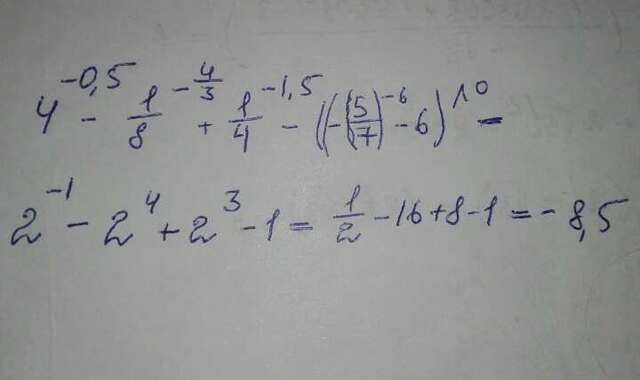 4^{-0,5} - \frac{1}{8}^{-\frac{4}{3}} + \frac{1}{4}^{-1,5} - ((-(\frac{5}{7})^{-6} - 6)^{10} =
2^{-1} - 2^{4} + 2^{3} - 1 = \frac{1}{2} - 16 + 8 - 1 = -8,5